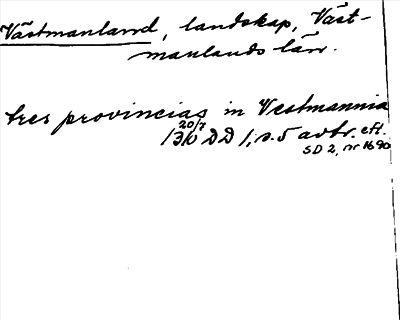 Västmanland, landskap, Väst-
manlands län.
tres provincias in Vestmannia
20/7
1310 DD 1, s. 5 avtr. eft.
SD 2, nr 1690